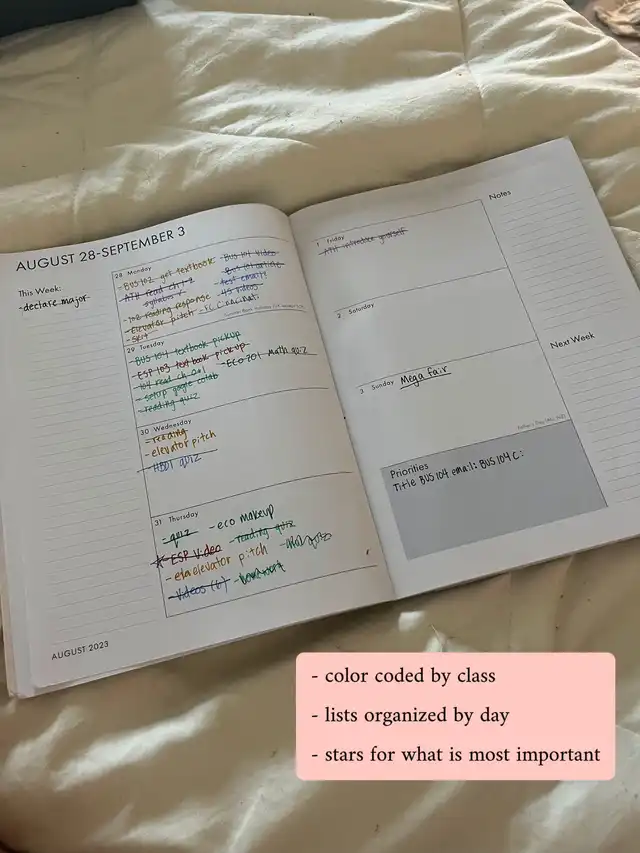 AUGUST 28-SEPTEMBER 3
This Week:
-declare major
28 Monday
-BUS 102 get textbook
-ATH read ch 1-2
syllabus
-102 reading response
-elevator pitch
-skit
-Bus 104 video
-Bus 101 article
-test email
-45 videos
29 Tuesday
-BUS 104 textbook pickup
-ESP 103 textbook pickup
-104 read ch 001
-setup google colab
-reading quiz
-ECO 201 math quiz
30 Wednesday
-reading
-elevator pitch
quiz
31 Thursday
-quiz
-eco makeup
-ESP video
-reading quiz
elevator pitch
-videos (6)
AUGUST 2023
1 Friday
-ATH introduce yourself
2 Saturday
3 Sunday Mega fair
Father's Day (AU, NZ)
Priorities
Title BUS 104 email: BUS 104 C:
Notes
Next Week
- color coded by class
- lists organized by day
- stars for what is most important